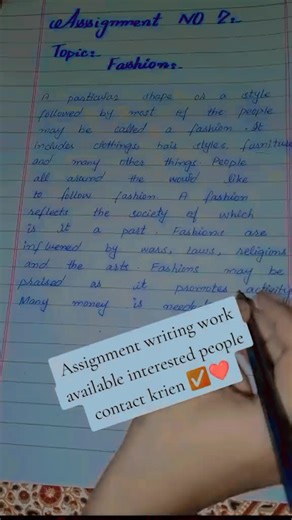 Assignment NO 7:
Topic:
Fashion:
A particular shape or a style
followed by most of the people
may be called a fashion. It
includes clothings hair styles, furniture
and many other things. People
all around the would like
to follow fashion. A fashion
reflects the society of which
is it a part. Fashions are
influened by wars, laws, religions
and the arts Fashions may be
praised as it promotes activity
Many money is
Assignment writing work
available interested people
contact krien ✅❤️